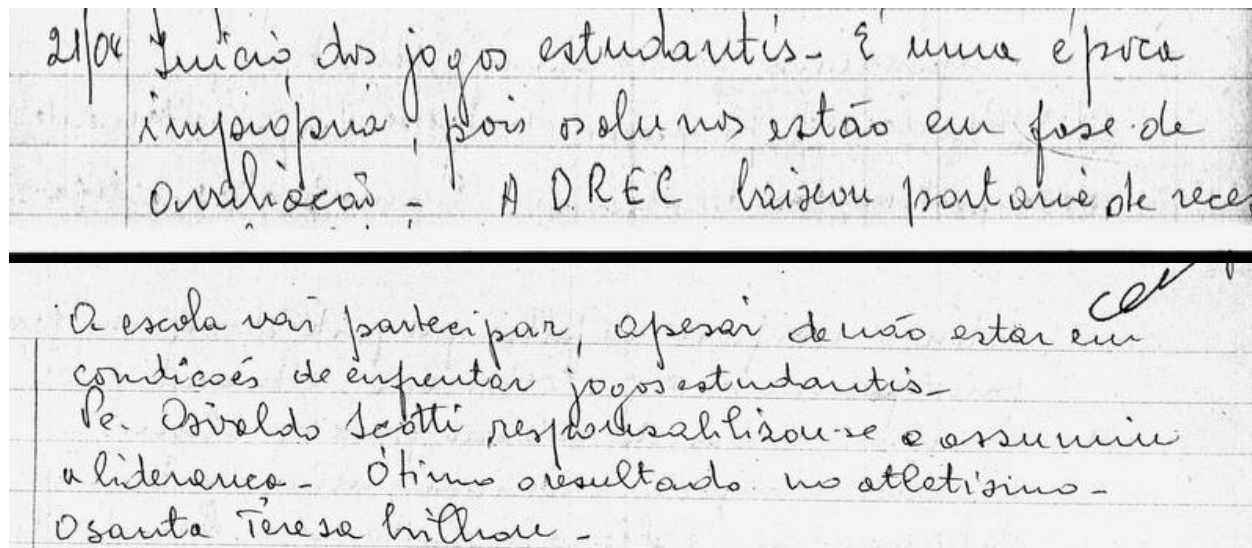 21/04 Início dos jogos estudantis - É uma época
imprópria, pois os alunos estão em fase de
avaliação - A DREC baixou portaria de reces
A escola vai participar, apesar de não estar em
condições de enfrentar jogos estudantis -
Pe. Osivaldo Scotti responsabilizou-se e assumiu
a liderança - Ótimo o resultado no atletismo -
O Santa Teresa brilhou -